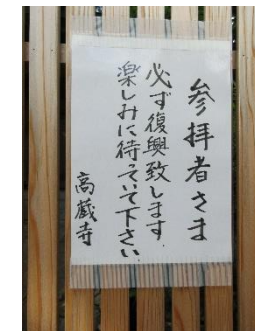 参拝者さま
必ず復興致します。
楽しみに待っていて下さい
高蔵寺